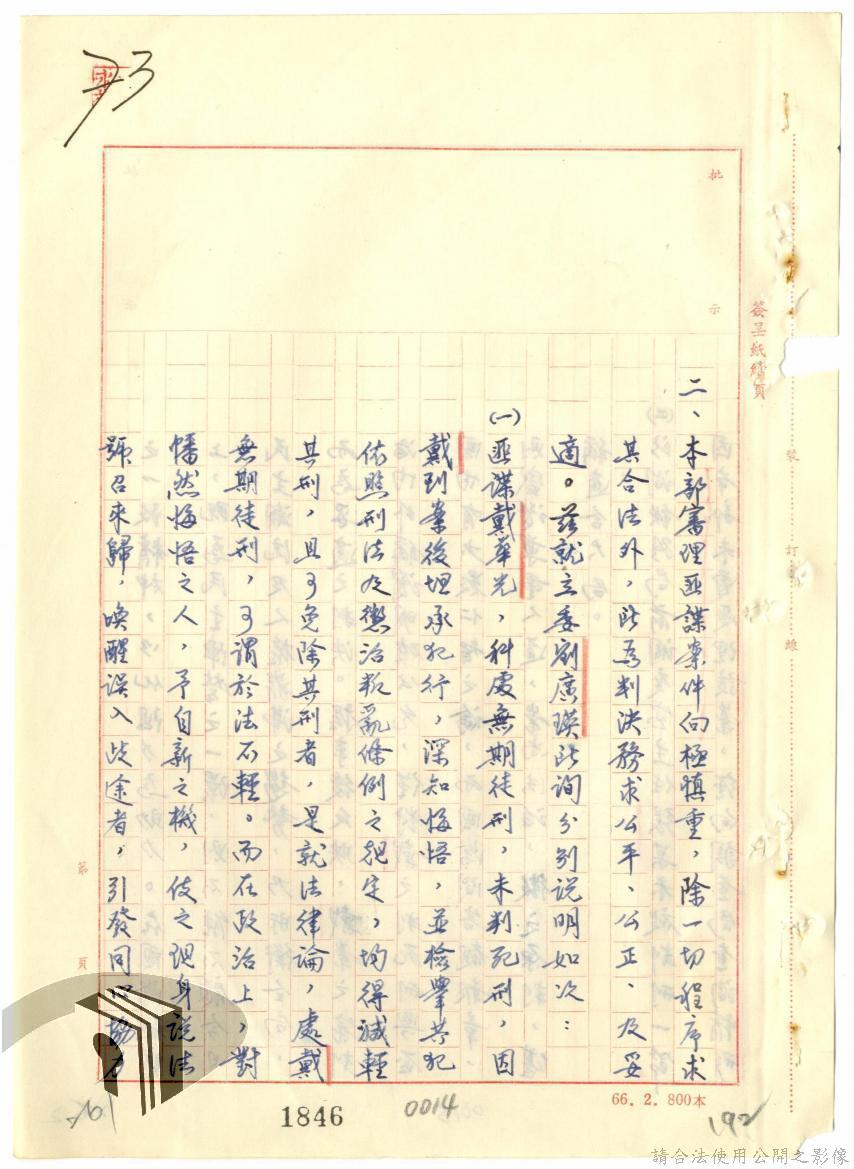 73
批
示
簽呈紙續頁
裝
訂
線
二、本部審理匪諜案件向極慎重，除一切程序求
其合法外，此為判決務求公平、公正、及妥
適。茲就立委劉廣瑛所詢分別說明如次：
(一)匪諜戴華光，科處無期徒刑，未判死刑，因
戴到案後坦承犯行，深知悔悟，並檢舉共犯
依照刑法及懲治叛亂條例之規定，均得減輕
其刑，且可免除其刑者，是就法律論，處戴
無期徒刑，可謂於法不輕。而在政治上，對
幡然悔悟之人，予自新之機，使之現身說法
號召來歸，喚醒誤入歧途者，引發同心協力
第
頁
66. 2. 800本
1846
0014
192
請合法使用公開之影像